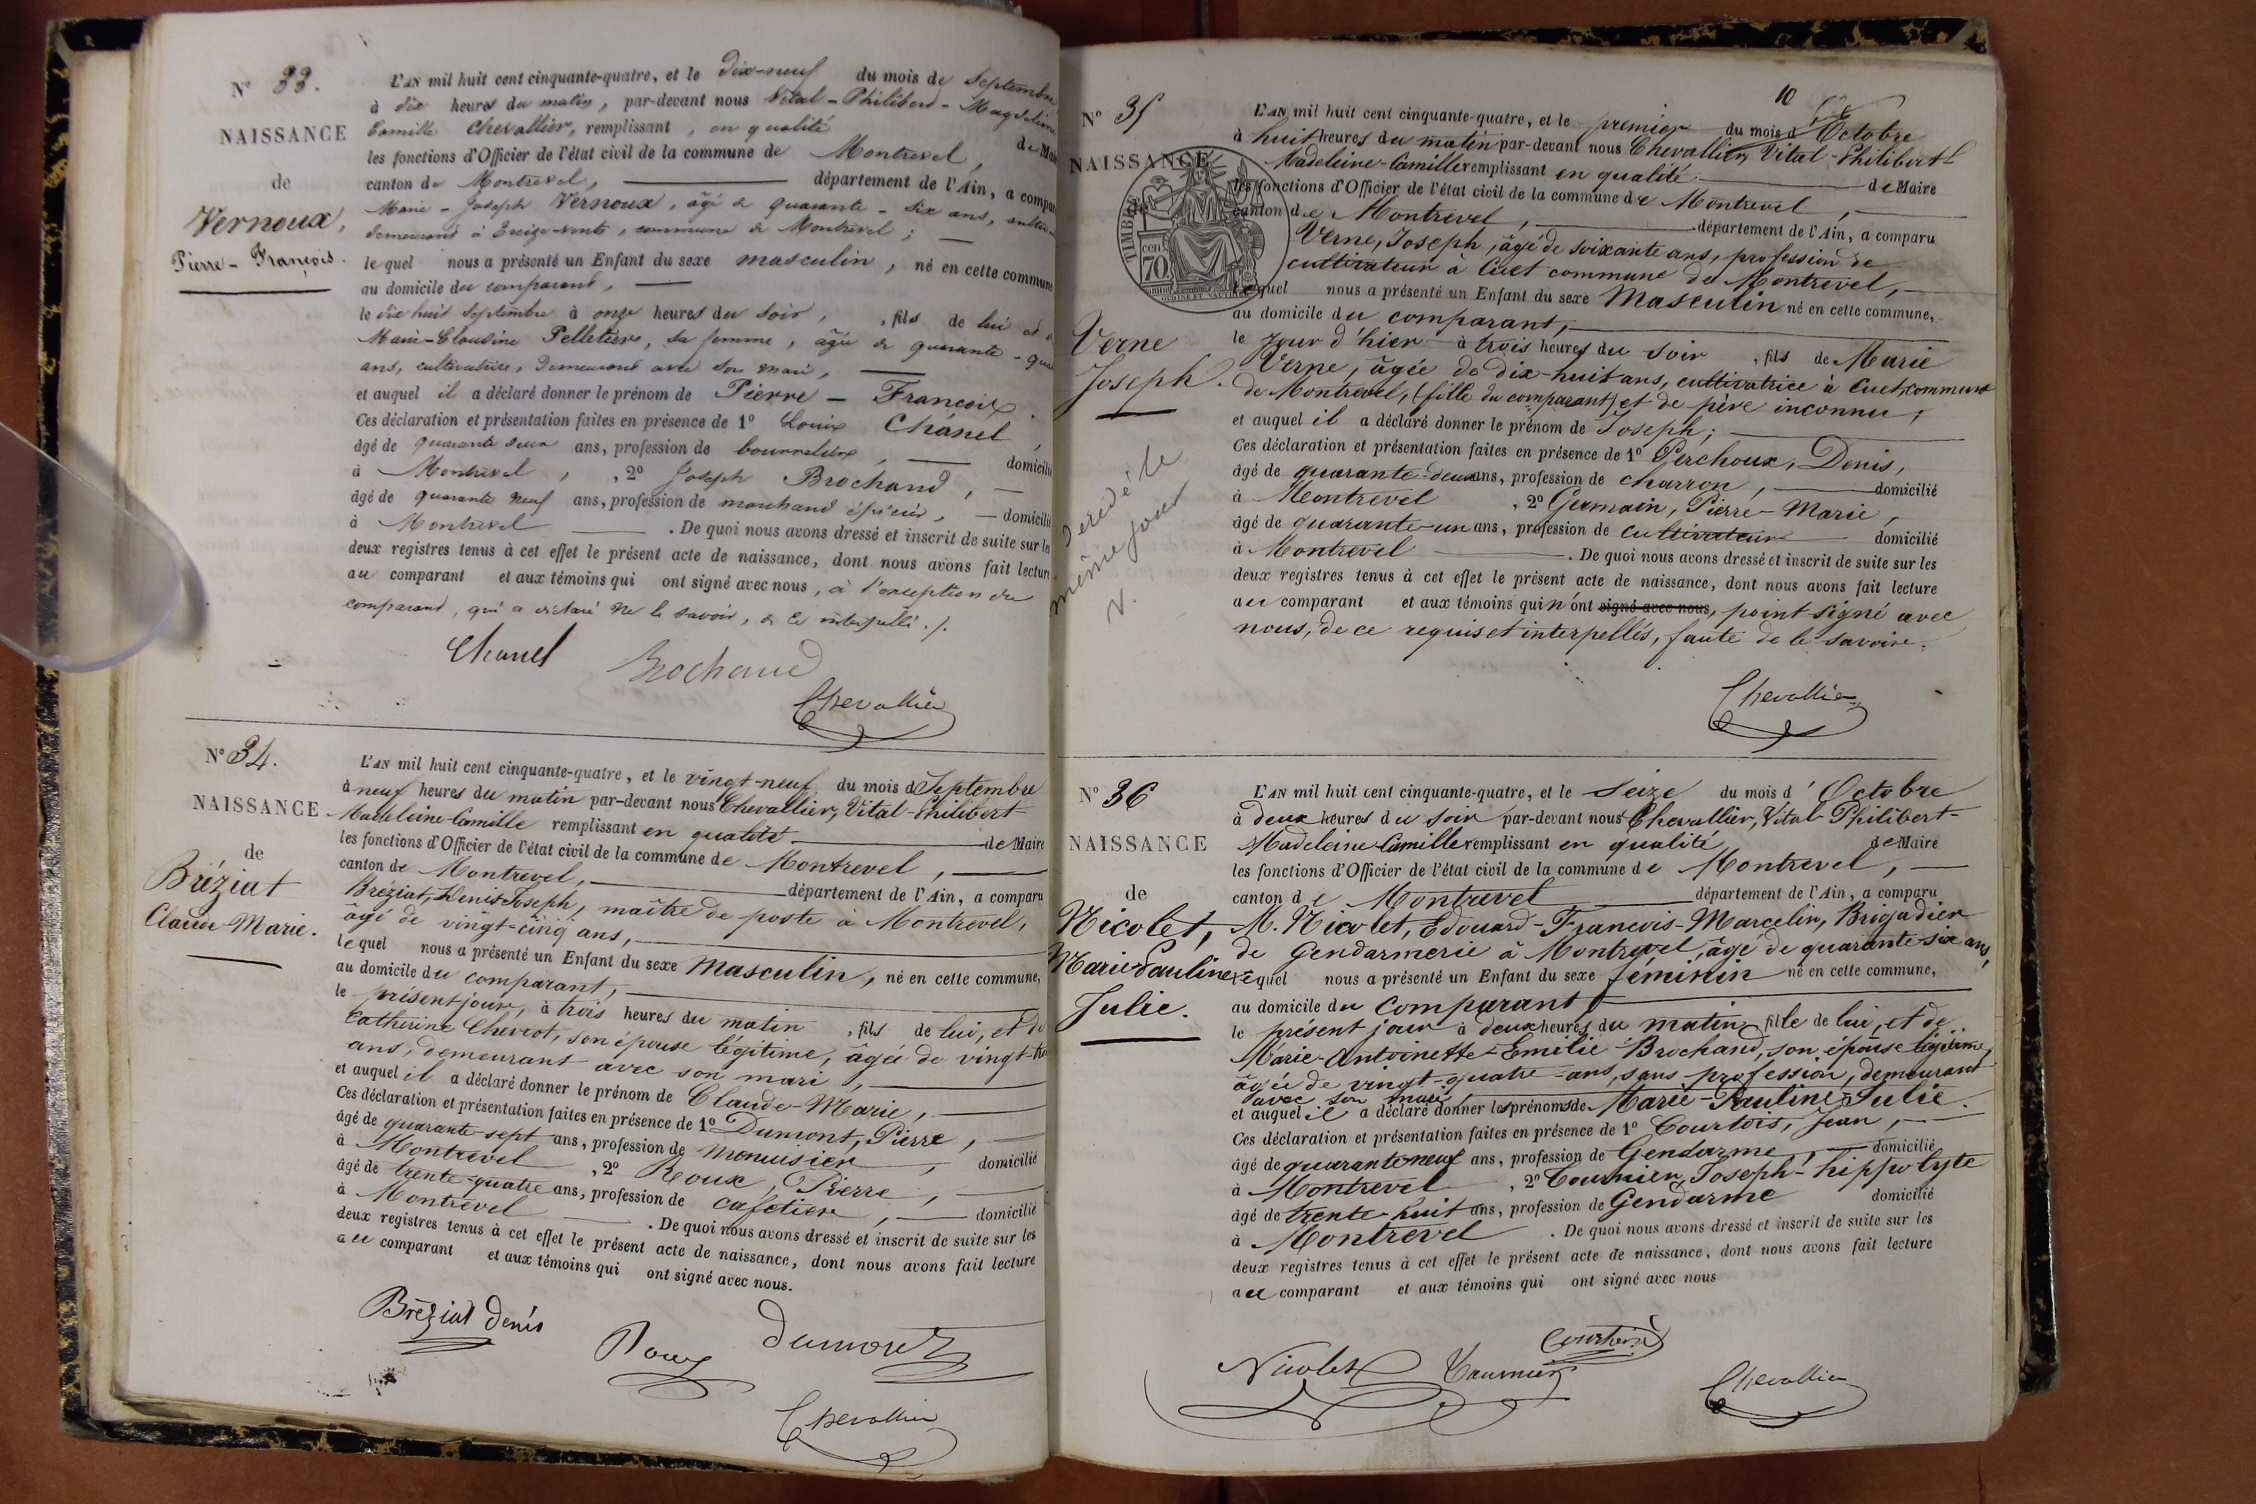 N° 33.
NAISSANCE
de
Vernoux,
Pierre-François.
L'AN mil huit cent cinquante-quatre, et le dix-neuf du mois de Septembre
à dix heures du matin, par-devant nous Vital-Philibert-Magdeleine
Camille Chevallier, remplissant, en qualité de Maire
les fonctions d'Officier de l'état civil de la commune de Montrevel,
canton de Montrevel, département de l'Ain, a comparu
Marie-Joseph Vernoux, âgé de quarante-six ans,
demeurant à commune de Montrevel;
lequel nous a présenté un Enfant du sexe masculin, né en cette commune
au domicile du comparant,
le dix huit Septembre à onze heures du soir, fils de lui et de
Marie-Claudine Pelletier, sa femme, âgée de quarante-
ans, cultivatrice, demeurant avec son mari,
et auquel il a déclaré donner le prénom de Pierre-François.
Ces déclaration et présentation faites en présence de 1° Louis Chanel,
âgé de quarante deux ans, profession de bourrelier, domicilié
à Montrevel, 2° Joseph Brochand,
âgé de quarante neuf ans, profession de marchand épicier, domicilié
à Montrevel. De quoi nous avons dressé et inscrit de suite sur les
deux registres tenus à cet effet le présent acte de naissance, dont nous avons fait lecture
au comparant et aux témoins qui ont signé avec nous, à l'exception du
comparant, qui a déclaré ne le savoir, de ce interpellé./.
Chanel
Brochand
Chevallier
N° 34.
NAISSANCE
de
Bréziat
Claude Marie.
L'AN mil huit cent cinquante-quatre, et le vingt-neuf du mois d Septembre
à neuf heures du matin par-devant nous Chevallier, Vital-Philibert-
Madeleine-Camille remplissant en qualité de Maire
les fonctions d'Officier de l'état civil de la commune de Montrevel,
canton de Montrevel, département de l'Ain, a comparu
Bréziat, Denis Joseph, maître de poste à Montrevel,
âgé de vingt-cinq ans,
lequel nous a présenté un Enfant du sexe Masculin, né en cette commune,
au domicile du comparant,
le présent jour, à trois heures du matin, fils de lui, et de
Catherine Chevrot, son épouse légitime, âgée de vingt-
ans, demeurant avec son mari,
et auquel il a déclaré donner le prénom de Claude-Marie,
Ces déclaration et présentation faites en présence de 1° Dumont, Pierre,
âgé de quarante-sept ans, profession de menuisier, domicilié
à Montrevel, 2° Roux, Pierre,
âgé de trente-quatre ans, profession de cafetier, domicilié
à Montrevel. De quoi nous avons dressé et inscrit de suite sur les
deux registres tenus à cet effet le présent acte de naissance, dont nous avons fait lecture
au comparant et aux témoins qui ont signé avec nous.
Bréziat Denis
Roux
Dumont
Chevallier
10
N° 35
NAISSANCE
TIMBRE
70 cen
Verne
Joseph.
Décédé le
même jour
L'AN mil huit cent cinquante-quatre, et le premier du mois d'Octobre
à huit heures du matin par-devant nous Chevallier, Vital-Philibert
Madeleine-Camille remplissant en qualité de Maire
les fonctions d'Officier de l'état civil de la commune de Montrevel,
canton de Montrevel, département de l'Ain, a comparu
Verne, Joseph, âgé de soixante ans, profession de
cultivateur à Cuet commune de Montrevel,
lequel nous a présenté un Enfant du sexe Masculin né en cette commune,
au domicile du comparant,
le jour d'hier à trois heures du soir, fils de Marie
Verne, âgée de dix-huit ans, cultivatrice à Cuet, commune
de Montrevel, (fille du comparant) et de père inconnu;
et auquel il a déclaré donner le prénom de Joseph;
Ces déclaration et présentation faites en présence de 1° Perchoux, Denis,
âgé de quarante-deux ans, profession de charron, domicilié
à Montrevel, 2° Germain, Pierre-Marie,
âgé de quarante-un ans, profession de cultivateur domicilié
à Montrevel. De quoi nous avons dressé et inscrit de suite sur les
deux registres tenus à cet effet le présent acte de naissance, dont nous avons fait lecture
au comparant et aux témoins qui n'ont signé avec nous, point signé avec
nous, de ce requis et interpellés, faute de le savoir.
Chevallier
N° 36
NAISSANCE
de
Nicolet,
Marie-Pauline-
Julie.
L'AN mil huit cent cinquante-quatre, et le seize du mois d'Octobre
à deux heures du soir par-devant nous Chevallier, Vital-Philibert-
Madeleine-Camille remplissant en qualité de Maire
les fonctions d'Officier de l'état civil de la commune de Montrevel,
canton de Montrevel département de l'Ain, a comparu
M. Nicolet, Edouard-François-Marcelin, Brigadier
de Gendarmerie à Montrevel, âgé de quarante-six ans,
lequel nous a présenté un Enfant du sexe féminin né en cette commune,
au domicile du comparant,
le présent jour à deux heures du matin, fille de lui, et de
Marie-Antoinette-Emilie Brochand, son épouse légitime,
âgée de vingt-quatre-ans, sans profession, demeurant
avec son mari,
et auquel il a déclaré donner les prénoms de Marie-Pauline-Julie.
Ces déclaration et présentation faites en présence de 1° Courtois, Jean,
âgé de quarante-neuf ans, profession de Gendarme, domicilié
à Montrevel, 2° Tournier, Joseph-hippolyte
âgé de trente-huit ans, profession de Gendarme domicilié
à Montrevel. De quoi nous avons dressé et inscrit de suite sur les
deux registres tenus à cet effet le présent acte de naissance, dont nous avons fait lecture
au comparant et aux témoins qui ont signé avec nous
Courtois
Nicolet
Tournier
Chevallier